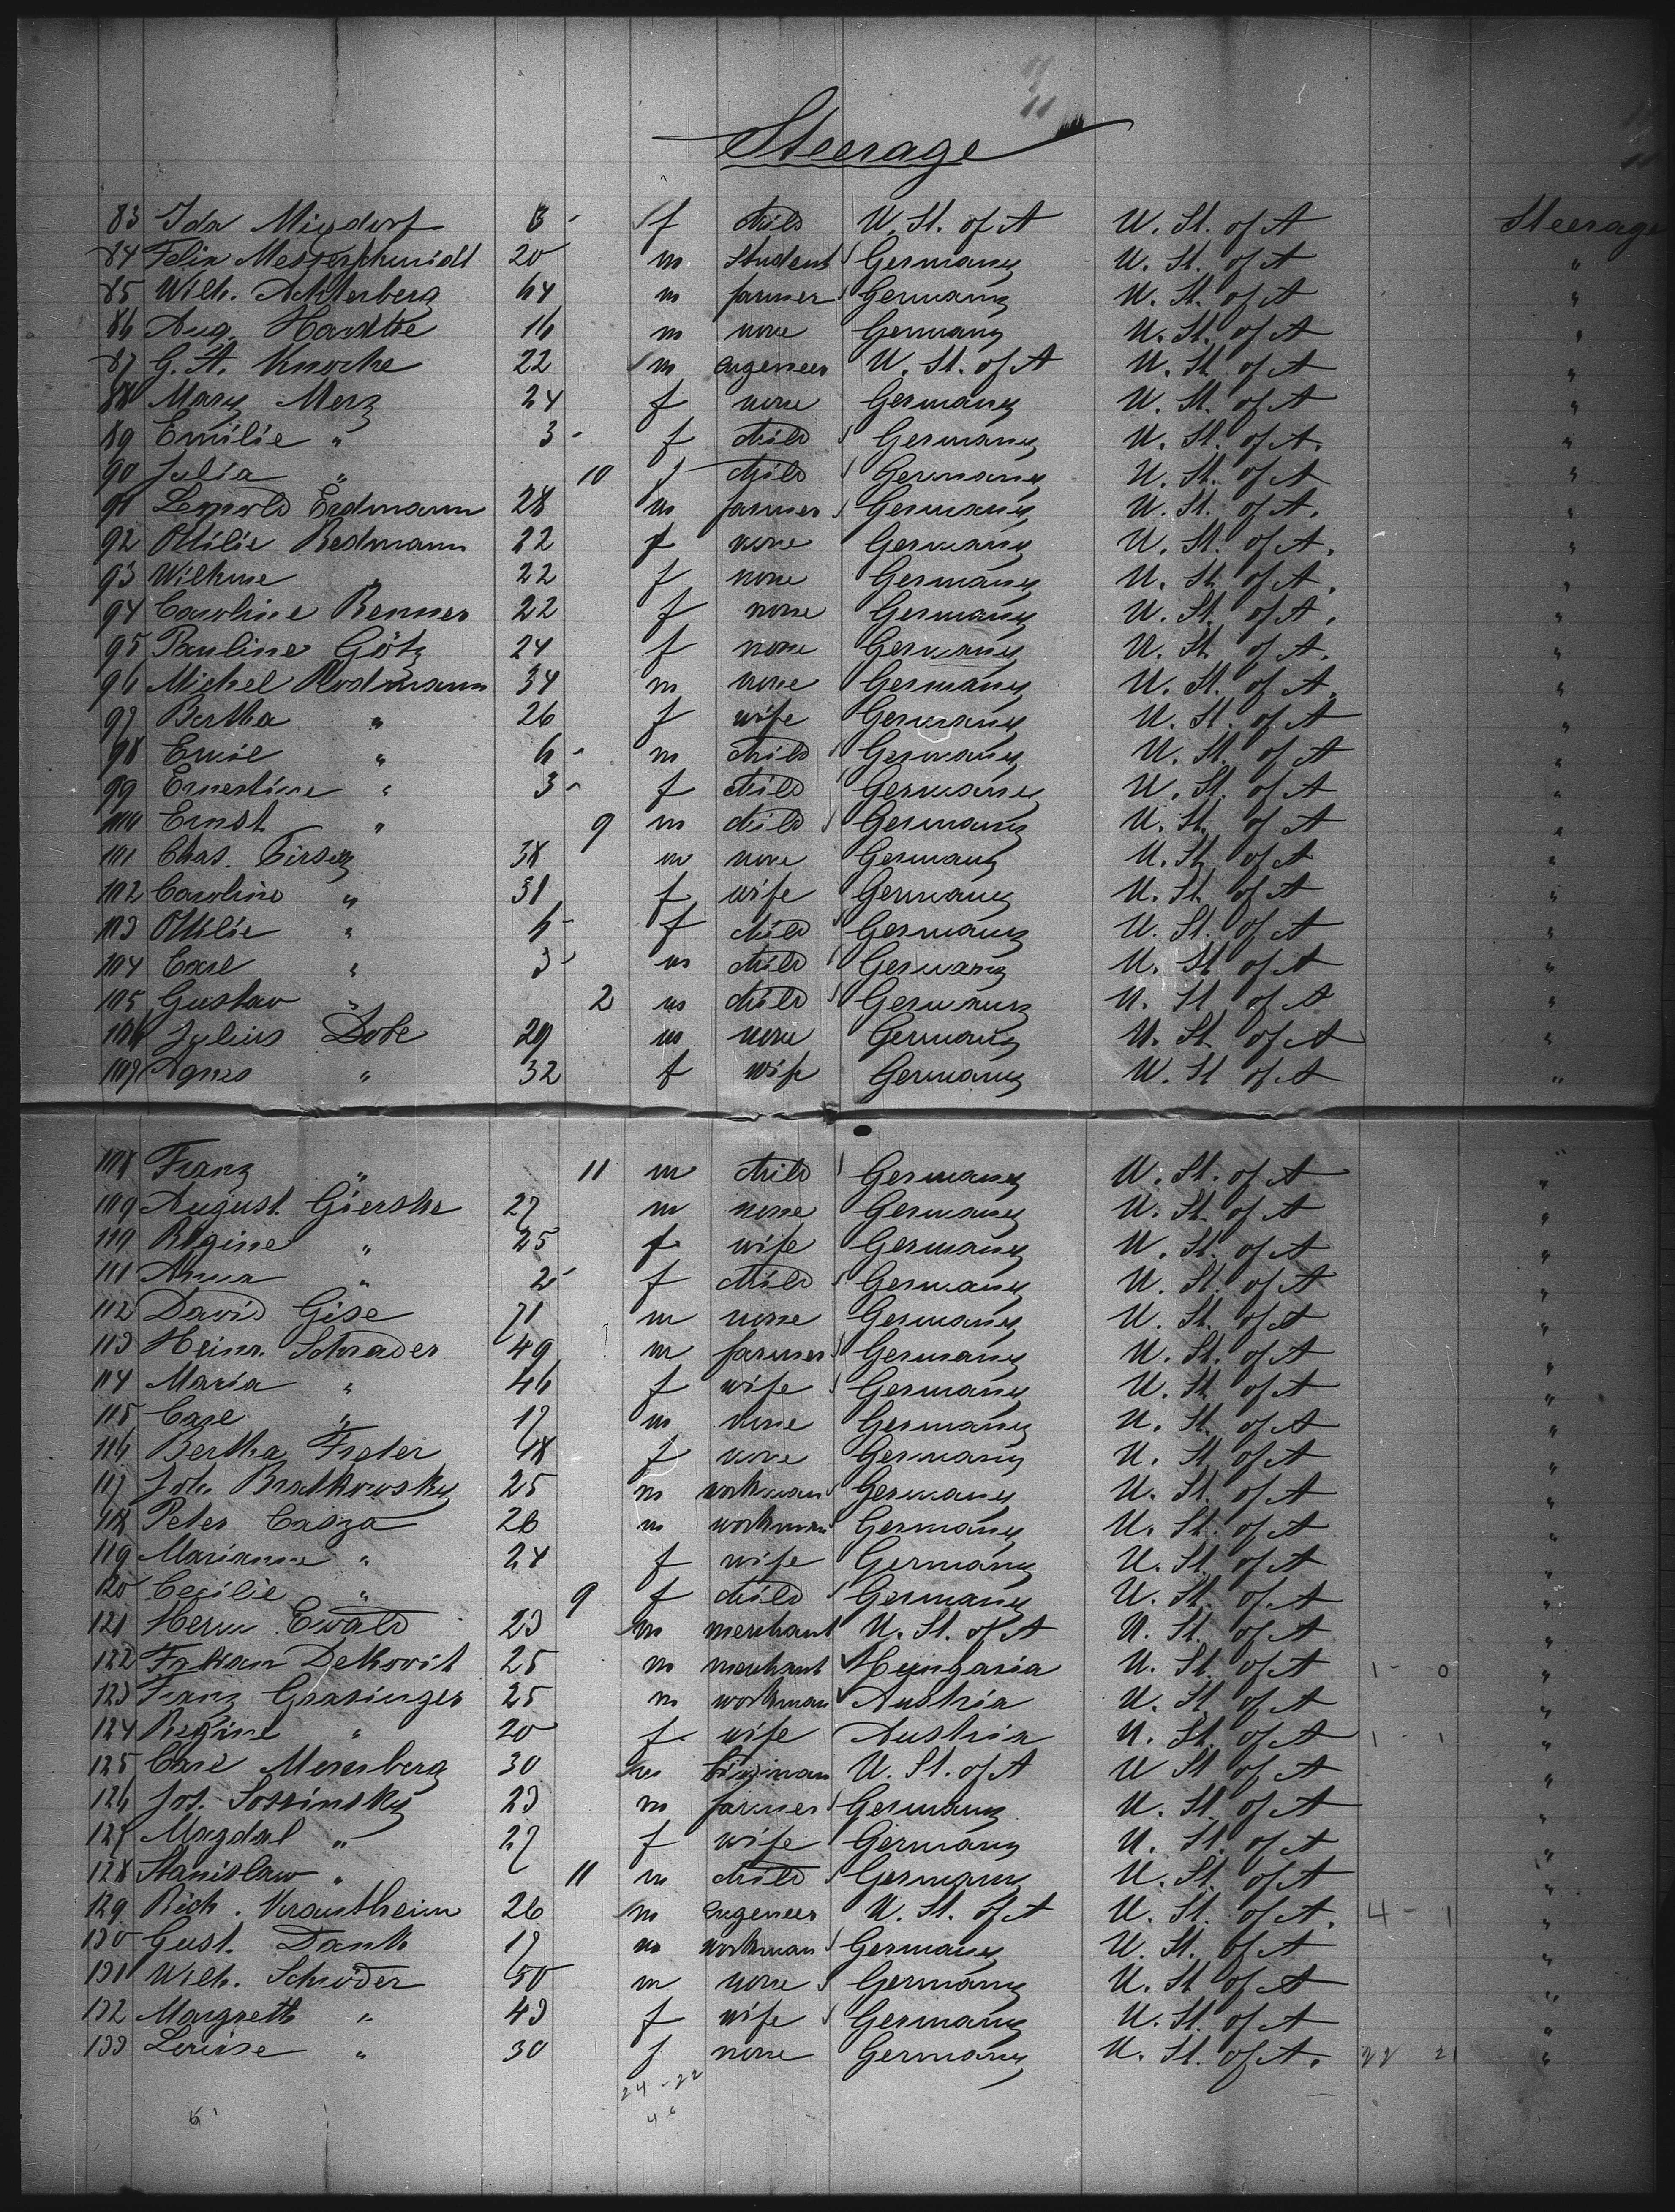 Steerage
83 Ida Migdorf 6 - f child U. St. of A U. St. of A Steerage
84 Felix Messerschmidt 20 m student Germany U. St. of A "
85 Wilh. Achterberg 64 m farmer Germany U. St. of A "
86 Aug. 16 m none Germany U. St. of A "
87 G. A. Knoche 22 m engeneer U. St. of A U. St. of A "
88 Mary Merz 24 f none Germany U. St. of A "
89 Emilie " 3 - f child Germany U. St. of A. "
90 Julia " 10 f child Germany U. St. of A "
91 Leopold Erdmann 28 m farmer Germany U. St. of A. "
92 Ottilie Redmann 22 f none Germany U. St. of A. "
93 Wilhme " 22 f none Germany U. St. of A. "
94 Caroline Renner 22 f none Germany U. St. of A. "
95 Pauline Götz 24 f none Germany U. St. of A. "
96 Michel Rodmann 34 m none Germany U. St. of A. "
97 Bertha " 26 f wife Germany U. St. of A "
98 Emil " 6 - m child Germany U. St. of A "
99 Ernestine " 3 - f child Germany U. St. of A "
100 Ernst " 9 m child Germany U. St. of A "
101 Chas. 38 m none Germany U. St. of A "
102 Caroline " 31 f wife Germany U. St. of A "
103 Ottilie " 6 - f child Germany U. St. of A "
104 Carl " 3 - m child Germany U. St. of A "
105 Gustav " 2 m child Germany U. St. of A "
106 Julius Dobe 29 m none Germany U. St. of A "
107 Agnes " 32 f wife Germany U. St. of A "
108 Franz " 11 m child Germany U. St. of A "
109 August Gierske 27 m none Germany U. St. of A "
110 Regine " 25 f wife Germany U. St. of A "
111 Anna " 2 - f child Germany U. St. of A "
112 David Gise 71 m none Germany U. St. of A "
113 Heinr. Schrader 49 m farmer Germany U. St. of A "
114 Maria " 46 f wife Germany U. St. of A "
115 Carl " 17 m none Germany U. St. of A "
116 Bertha Freter 48 f none Germany U. St. of A "
117 Joh. Bratkowsky 25 m workman Germany U. St. of A "
118 Peter Casza 26 m workman Germany U. St. of A "
119 Marianne " 24 f wife Germany U. St. of A "
120 Cecilie " 9 f child Germany U. St. of A "
121 Herm. Ewald 23 m merchant U. St. of A U. St. of A "
122 Dekovit 25 m merchant Hungaria U. St. of A 1 - 0 "
123 Franz Grasinger 25 m workman Austria U. St. of A "
124 Regine " 20 f wife Austria U. St. of A 1 - 1 "
125 Carl Meresberg 30 m U. St. of A U St of A "
126 Jos. Sossinsky 23 m farmer Germany U. St. of A "
127 Magdal " 27 f wife Germany U. St. of A "
128 Stanislaw " 11 m child Germany U. St. of A "
129 Rich. Krautheim 26 m engeneer U. St. of A U. St. of A. 4 - 1 "
130 Gust. Dank 17 m workman Germany U. St. of A "
131 Wilh. Schröder 50 m none Germany U. St. of A "
132 Margreth " 43 f wife Germany U. St. of A "
133 Louise " 30 f none Germany U. St. of A. 22 21 "
24 - 22
46